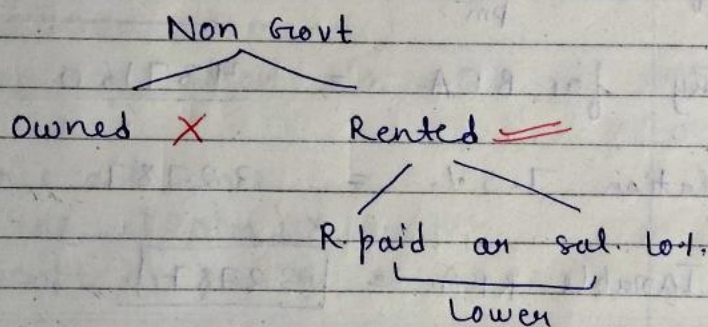 Non Govt
Owned X Rented
R. paid or sal. 10%.
Lower